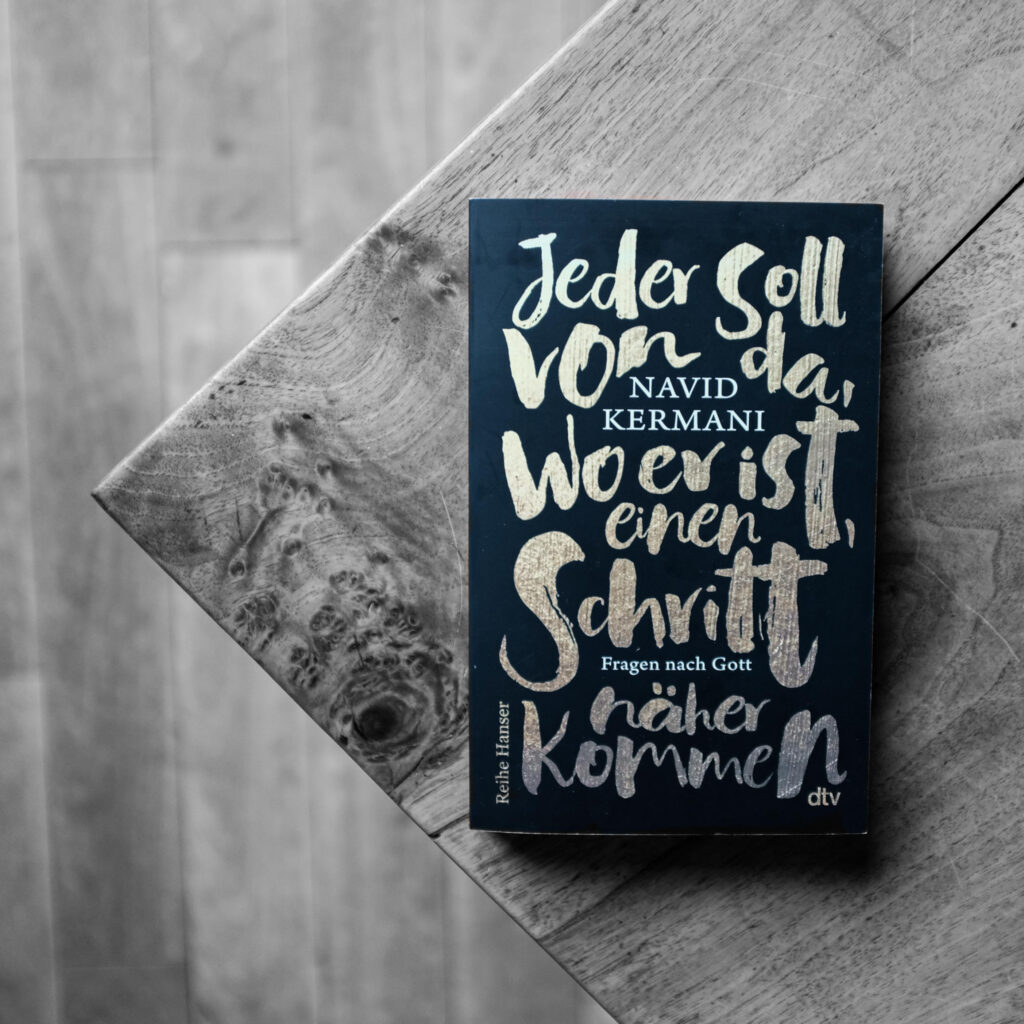 Jeder soll
von da,
NAVID
KERMANI
wo er ist,
einen
Schritt
Fragen nach Gott
näher
kommen
Reihe Hanser
dtv